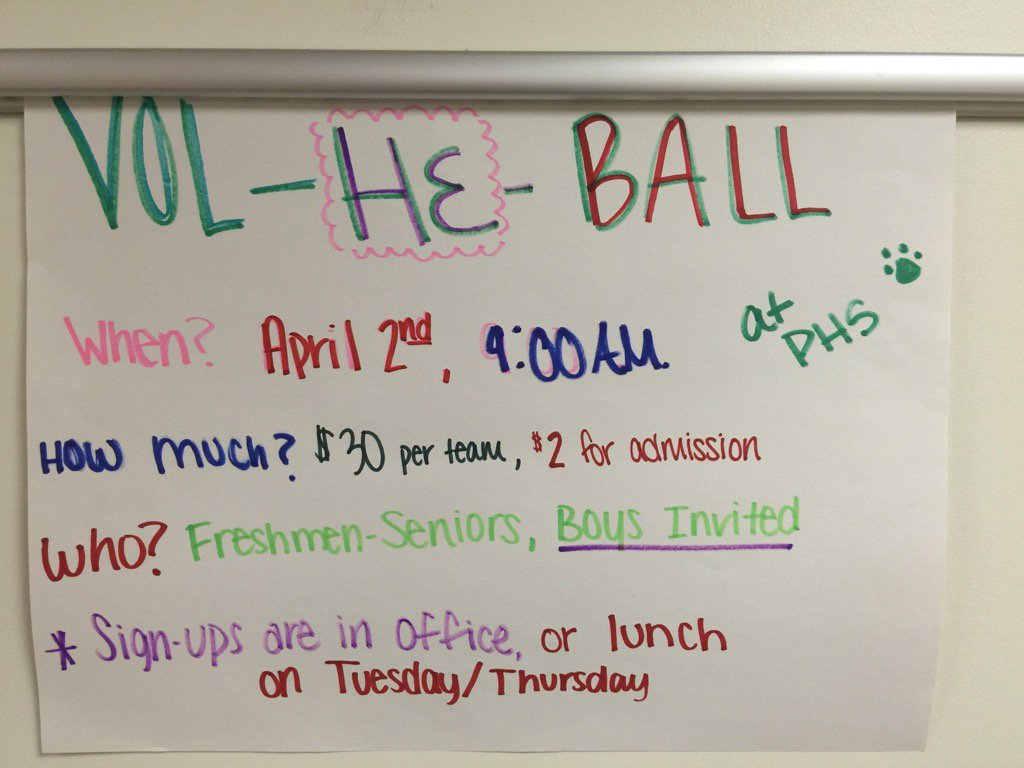 VOL-HE-BALL
at PHS
When? April 2nd, 9:00 A.M.
How much? $30 per team, $2 for admission
Who? Freshmen-Seniors, Boys Invited
* Sign-ups are in office, or lunch
on Tuesday/Thursday